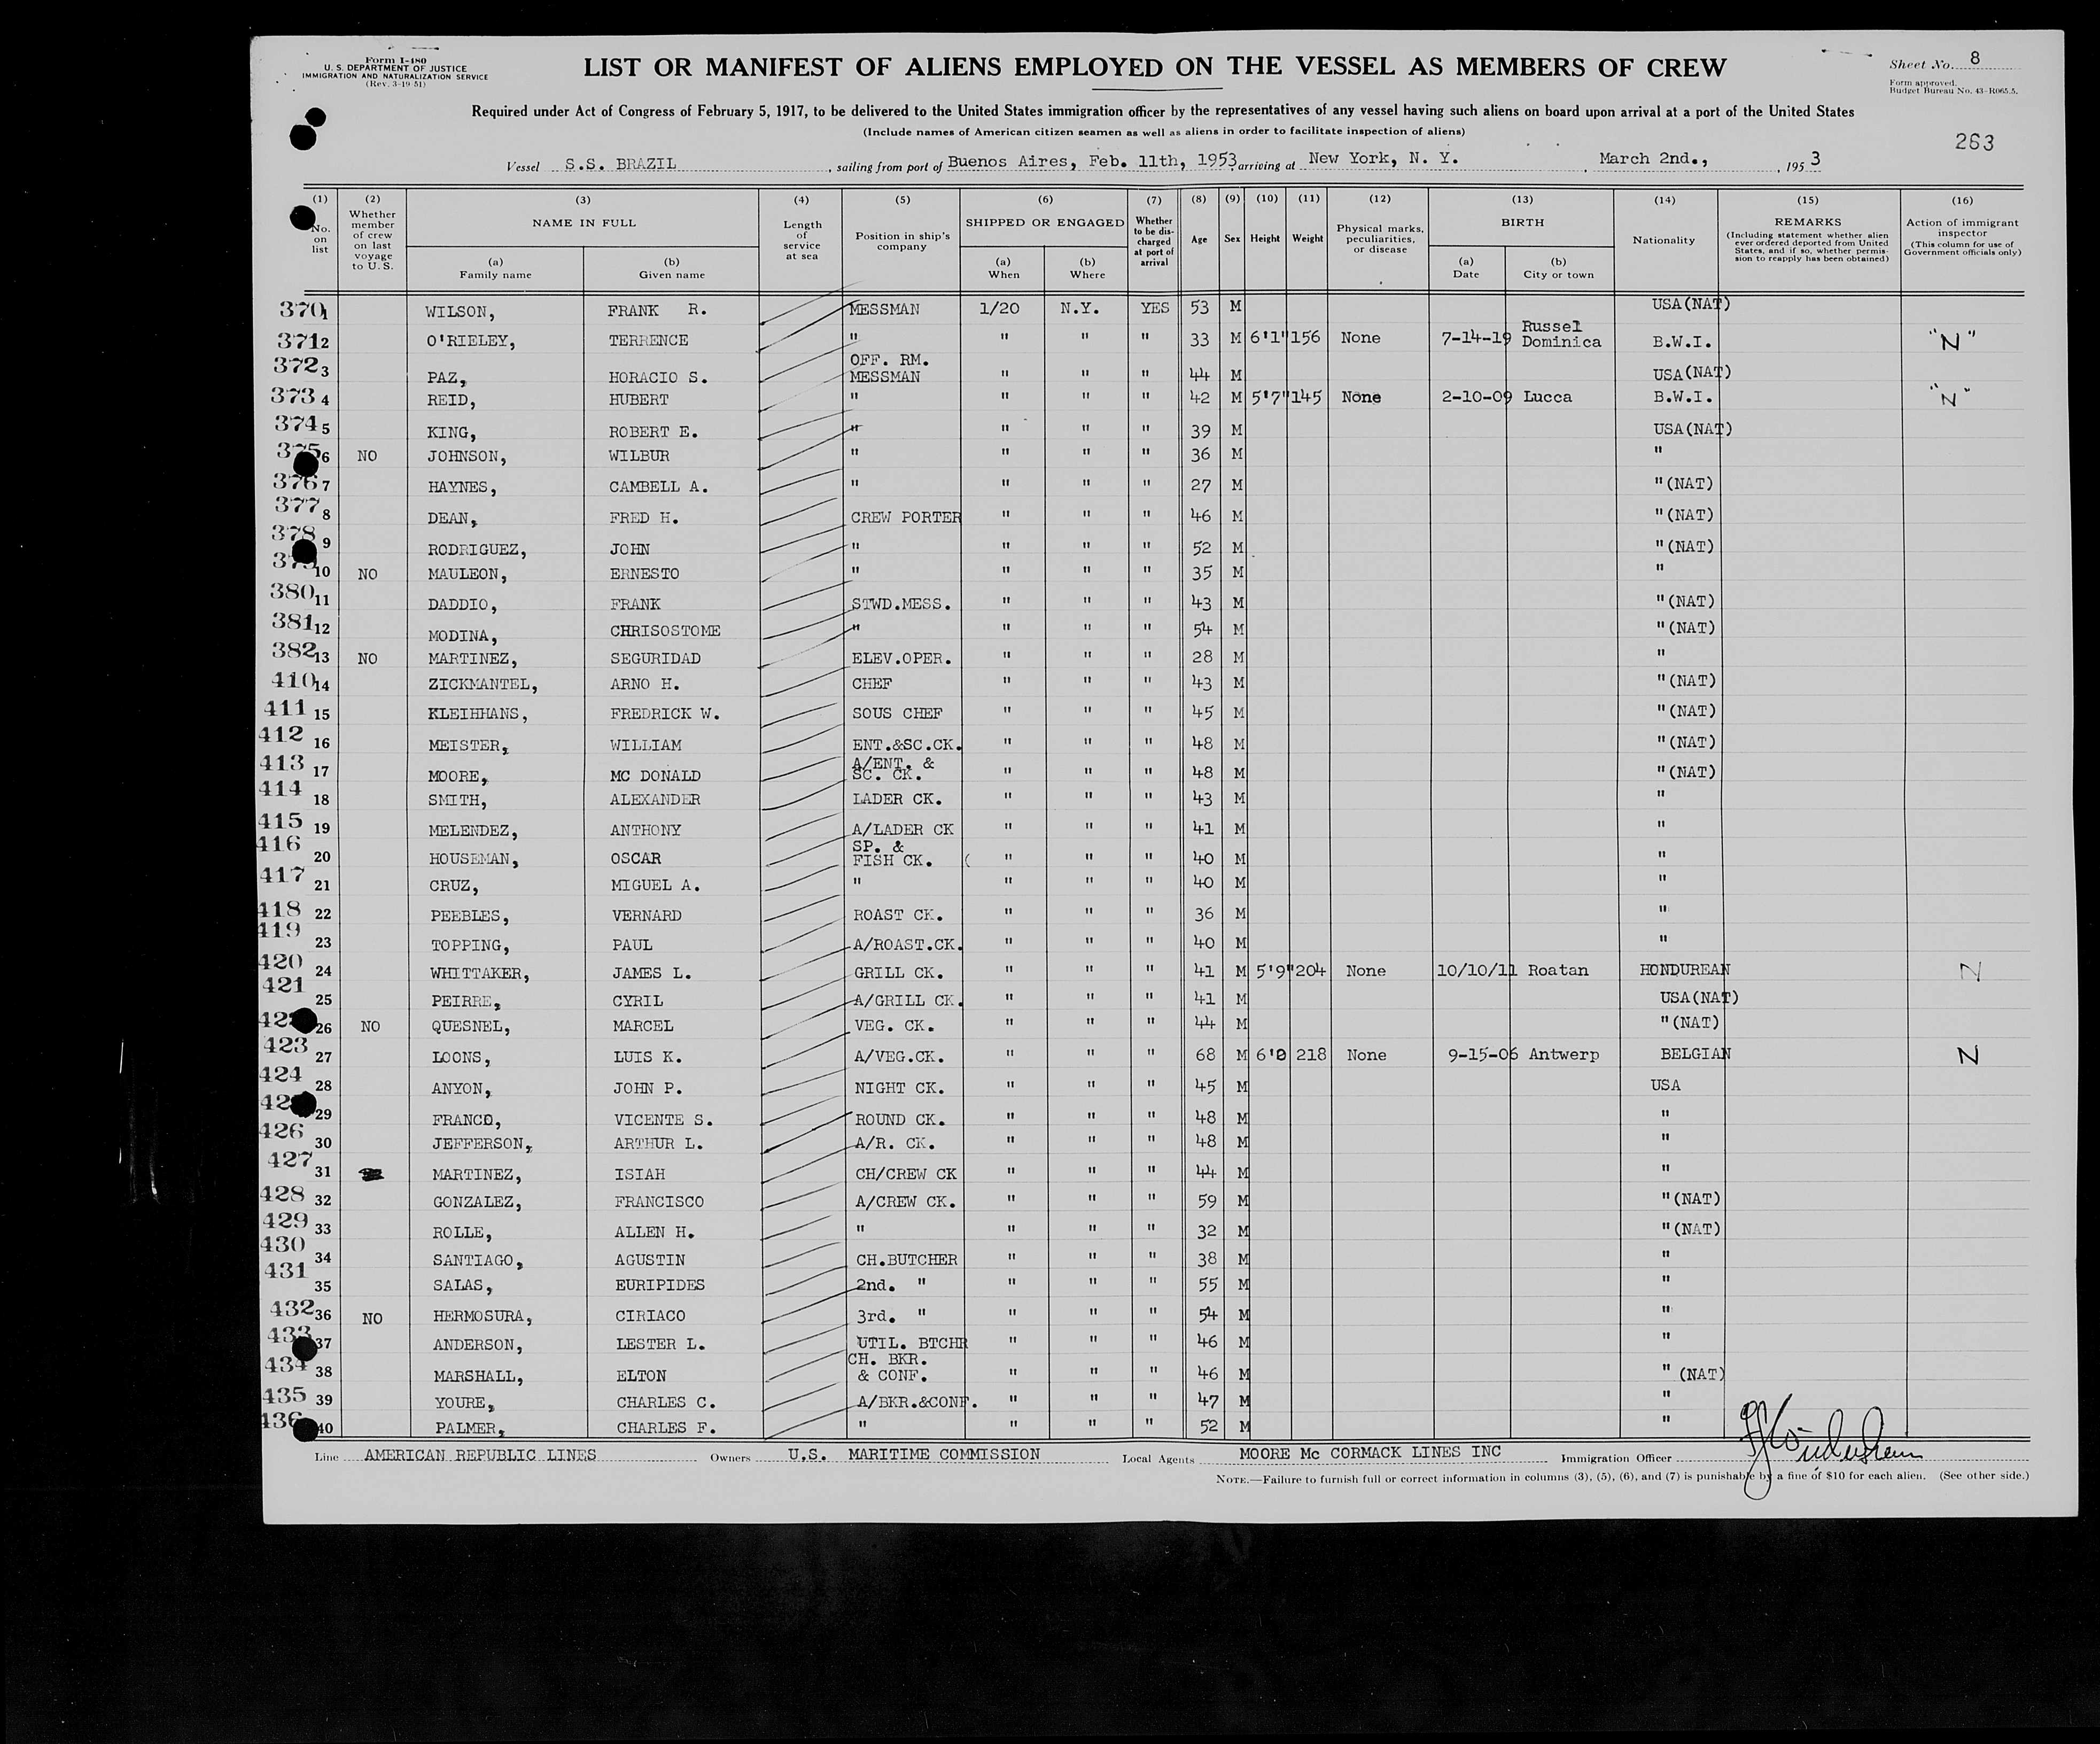 Form I-480
U. S. DEPARTMENT OF JUSTICE
IMMIGRATION AND NATURALIZATION SERVICE
(Rev. 3-19-51)
LIST OR MANIFEST OF ALIENS EMPLOYED ON THE VESSEL AS MEMBERS OF CREW
Sheet No. 8
Form approved.
Budget Bureau No. 43-R065.5.
Required under Act of Congress of February 5, 1917, to be delivered to the United States immigration officer by the representatives of any vessel having such aliens on board upon arrival at a port of the United States
(Include names of American citizen seamen as well as aliens in order to facilitate inspection of aliens)
263
Vessel S.S. BRAZIL, sailing from port of Buenos Aires, Feb. 11th, 1953 arriving at New York, N. Y., March 2nd., 1953
(1) No. on list
(2) Whether member of crew on last voyage to U. S.
(3) NAME IN FULL
(a) Family name
(b) Given name
(4) Length of service at sea
(5) Position in ship's company
(6) SHIPPED OR ENGAGED
(a) When
(b) Where
(7) Whether to be discharged at port of arrival
(8) Age
(9) Sex
(10) Height
(11) Weight
(12) Physical marks, peculiarities, or disease
(13) BIRTH
(a) Date
(b) City or town
(14) Nationality
(15) REMARKS
(Including statement whether alien ever ordered deported from United States, and if so, whether permission to reapply has been obtained)
(16) Action of immigrant inspector
(This column for use of Government officials only)
370 1 WILSON, FRANK R. MESSMAN 1/20 N.Y. YES 53 M USA(NAT)
371 2 O'RIELEY, TERRENCE " " " " 33 M 6'1" 156 None 7-14-19 Russel Dominica B.W.I. "N"
372 3 PAZ, HORACIO S. OFF. RM. MESSMAN " " " 44 M USA(NAT)
373 4 REID, HUBERT " " " " 42 M 5'7" 145 None 2-10-09 Lucca B.W.I. "N"
374 5 KING, ROBERT E. " " " " 39 M USA(NAT)
375 6 NO JOHNSON, WILBUR " " " " 36 M "
376 7 HAYNES, CAMBELL A. " " " " 27 M "(NAT)
377 8 DEAN, FRED H. CREW PORTER " " " 46 M "(NAT)
378 9 RODRIGUEZ, JOHN " " " " 52 M "(NAT)
10 NO MAULEON, ERNESTO " " " " 35 M "
380 11 DADDIO, FRANK STWD.MESS. " " " 43 M "(NAT)
381 12 MODINA, CHRISOSTOME " " " " 54 M "(NAT)
382 13 NO MARTINEZ, SEGURIDAD ELEV.OPER. " " " 28 M "
410 14 ZICKMANTEL, ARNO H. CHEF " " " 43 M "(NAT)
411 15 KLEIHHANS, FREDRICK W. SOUS CHEF " " " 45 M "(NAT)
412 16 MEISTER, WILLIAM ENT.&SC.CK. " " " 48 M "(NAT)
413 17 MOORE, MC DONALD A/ENT. & SC. CK. " " " 48 M "(NAT)
414 18 SMITH, ALEXANDER LADER CK. " " " 43 M "
415 19 MELENDEZ, ANTHONY A/LADER CK " " " 41 M "
416 20 HOUSEMAN, OSCAR SP. & FISH CK. ( " " " 40 M "
417 21 CRUZ, MIGUEL A. " " " " 40 M "
418 22 PEEBLES, VERNARD ROAST CK. " " " 36 M "
419 23 TOPPING, PAUL A/ROAST.CK. " " " 40 M "
420 24 WHITTAKER, JAMES L. GRILL CK. " " " 41 M 5'9" 204 None 10/10/11 Roatan HONDUREAN N
421 25 PEIRRE, CYRIL A/GRILL CK. " " " 41 M USA(NAT)
26 NO QUESNEL, MARCEL VEG. CK. " " " 44 M "(NAT)
423 27 LOONS, LUIS K. A/VEG.CK. " " " 68 M 6'0 218 None 9-15-06 Antwerp BELGIAN N
424 28 ANYON, JOHN P. NIGHT CK. " " " 45 M USA
29 FRANCO, VICENTE S. ROUND CK. " " " 48 M "
426 30 JEFFERSON, ARTHUR L. A/R. CK. " " " 48 M "
427 31 MARTINEZ, ISIAH CH/CREW CK " " " 44 M "
428 32 GONZALEZ, FRANCISCO A/CREW CK. " " " 59 M "(NAT)
429 33 ROLLE, ALLEN H. " " " " 32 M "(NAT)
430 34 SANTIAGO, AGUSTIN CH.BUTCHER " " " 38 M "
431 35 SALAS, EURIPIDES 2nd. " " " " 55 M "
432 36 NO HERMOSURA, CIRIACO 3rd. " " " " 54 M "
433 37 ANDERSON, LESTER L. UTIL. BTCHR " " " 46 M "
434 38 MARSHALL, ELTON CH. BKR. & CONF. " " " 46 M " (NAT)
435 39 YOURE, CHARLES C. A/BKR.&CONF. " " " 47 M "
436 40 PALMER, CHARLES F. " " " " 52 M "
Line AMERICAN REPUBLIC LINES Owners U.S. MARITIME COMMISSION Local Agents MOORE Mc CORMACK LINES INC Immigration Officer
NOTE.—Failure to furnish full or correct information in columns (3), (5), (6), and (7) is punishable by a fine of $10 for each alien. (See other side.)